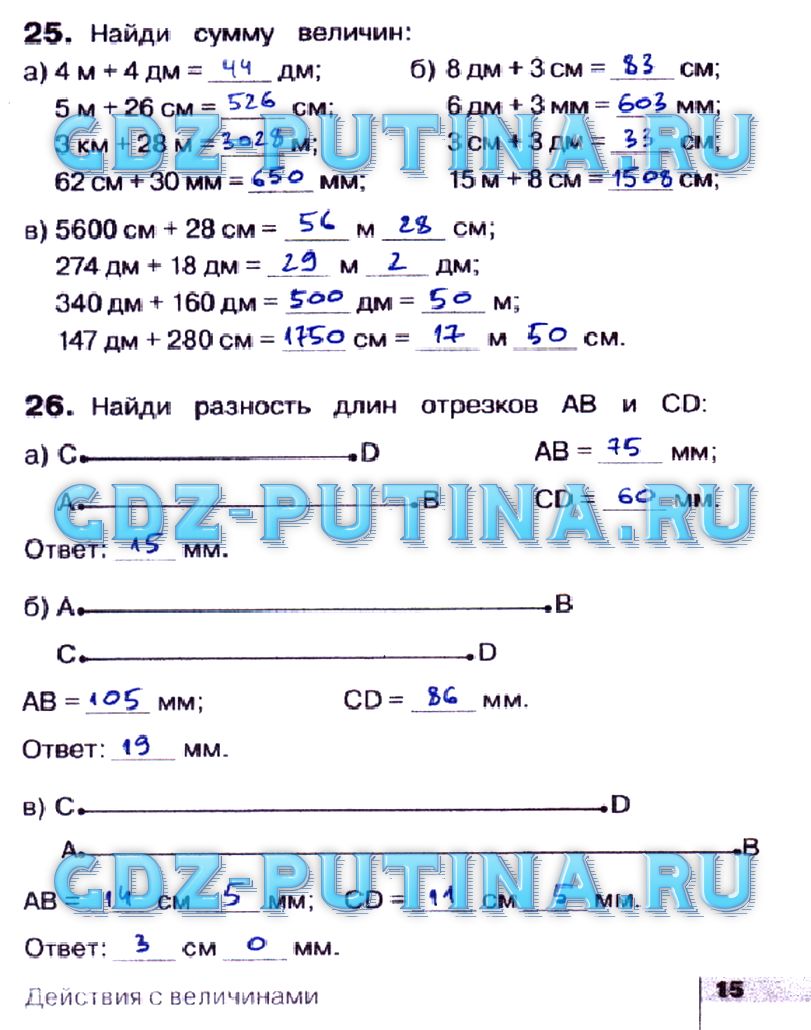 25. Найди сумму величин:
а) 4 м + 4 дм = 44 дм; б) 8 дм + 3 см = 83 см;
5 м + 26 см = 526 см; 6 дм + 3 мм = 603 мм;
3 км + 28 м = 3028 м; 3 см + 3 дм = 33 см;
GDZ-PUTINA.RU
62 см + 30 мм = 650 мм; 15 м + 8 см = 1508 см;
в) 5600 см + 28 см = 56 м 28 см;
274 дм + 18 дм = 29 м 2 дм;
340 дм + 160 дм = 500 дм = 50 м;
147 дм + 280 см = 1750 см = 17 м 50 см.
26. Найди разность длин отрезков AB и CD:
а) C D AB = 75 мм;
A B CD = 60 мм.
GDZ-PUTINA.RU
Ответ: 15 мм.
б) A B
C D
AB = 105 мм; CD = 86 мм.
Ответ: 19 мм.
в) C D
A B
GDZ-PUTINA.RU
AB = 14 см 5 мм; CD = 11 см 5 мм.
Ответ: 3 см 0 мм.
Действия с величинами 15